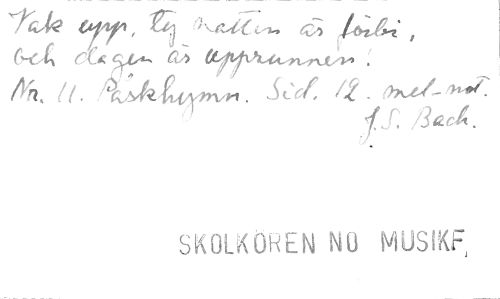 Vak upp, ty natten är förbi,
och dagen är upprunnen!
Nr. 11. Påskhymn. Sid. 12. mel-not.
J.S. Bach.
SKOLKÖREN NO MUSIKF,